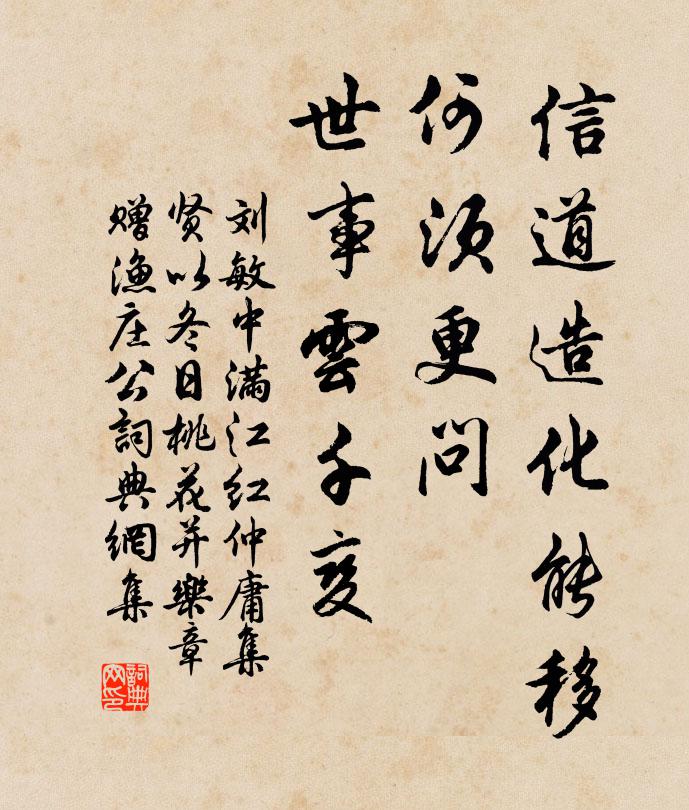 信道造化能移
何须更问
世事雲千变
刘敏中满江红仲庸集
贤以冬日桃花并樂章
赠渔庄公詞典網集
詞典网印